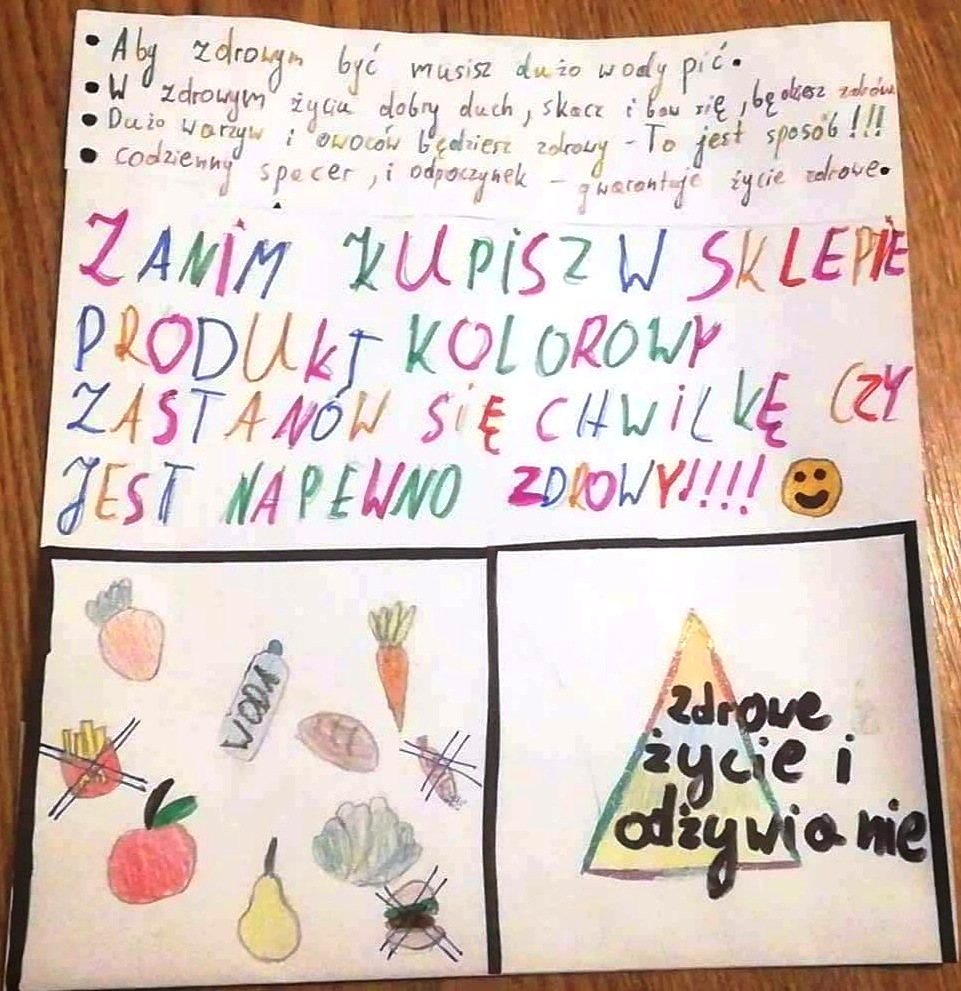 • Aby zdrowym być musisz dużo wody pić.
• W zdrowym życiu dobry duch, skacz i baw się, będziesz zdrów
• Dużo warzyw i owoców będziesz zdrowy - To jest sposób!!!
• codzienny spacer, i odpoczynek - gwarantuje życie zdrowe.
ZANIM KUPISZ W SKLEPIE
PRODUKT KOLOROWY
ZASTANÓW SIĘ CHWILKĘ CZY
JEST NAPEWNO ZDROWY!!!!!
WODA
zdrowe
życie i
odżywianie